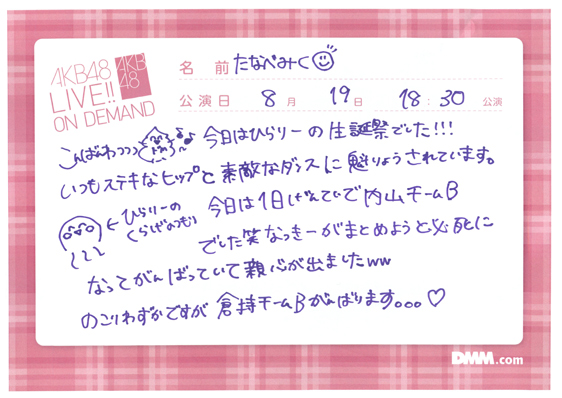 AKB48
LIVE!!
ON DEMAND
AKB
48
名 前 たなべみく
公演日 8月 19日 18:30 公演
こんばんわっっっ 今日はひらりーの生誕祭でした!!!
いつもステキなヒップと素敵なダンスに魅りょうされています。
←ひらりーの
くらげのつもり
今日は1日げんていで内山チームB
でした笑なっきーがまとめようと必死に
なってがんばっていて親心が出ましたww
のこりわずかですが倉持チームBがんばります。。。♡
DMM.com